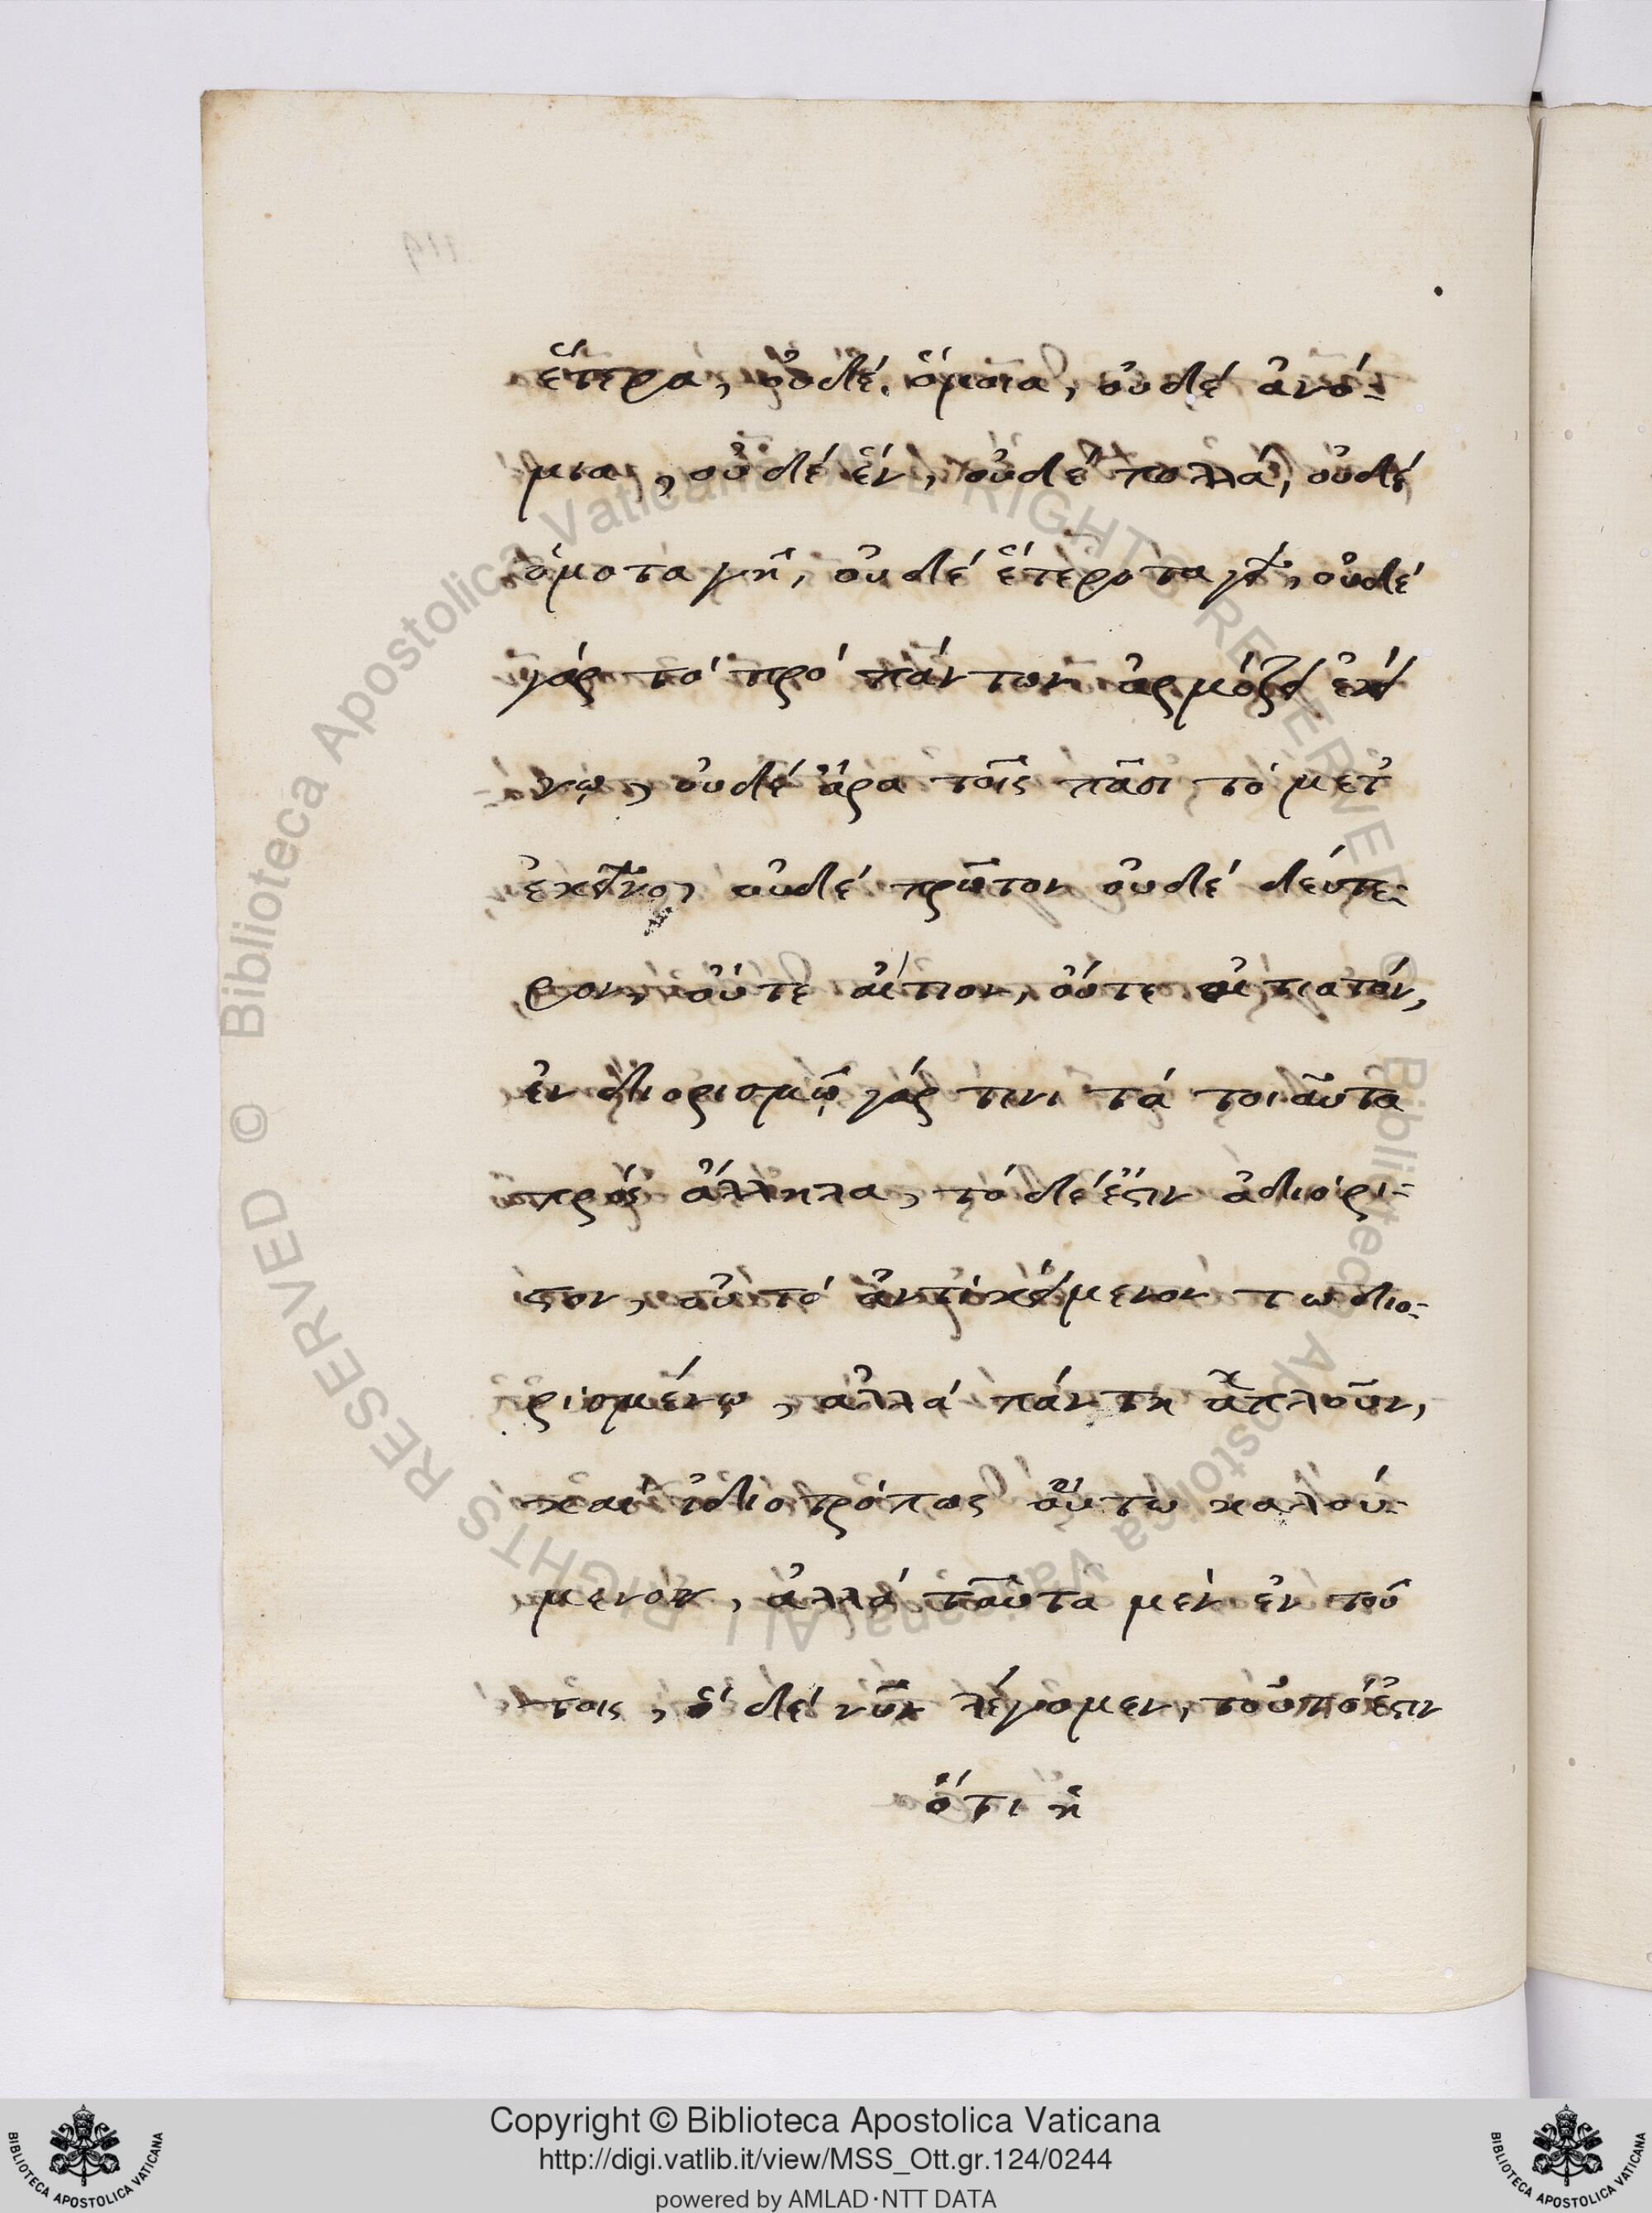 ἕτερα, οὐδέ ὅμοια, οὐδέ ἀνό-
μια, οὐδέ ἕν, οὐδέ πολλά, οὐδέ
ὁμοταγῆ, οὐδέ ἑτεροταγῆ, οὐδέ
γάρ τό πρό πάντων ἁρμόζει ἐκεί
νῳ, οὐδέ ἄρα τοῖς πᾶσι τό μετ'
ἐκεῖνο, οὐδέ πρῶτον οὐδέ δεύτε-
ρον, οὔτε αἴτιον, οὔτε αἰτιατόν,
ἐν διορισμῷ γάρ τινι τά τοιαῦτα
πρός ἄλληλα, τό δέ ἔστιν ἀδιόρι-
στον, οὐ τό ἀντικείμενον τω διο-
ρισμένῳ, ἀλλά πάντη ἁπλοῦν,
καί ἰδιοτρόπως οὕτω καλού-
μενον, ἀλλά ταῦτα μέν ἐν τού
τοις, ὅ δέ νῦν λέγομεν, τοῦτό ἔστιν
ὅτι ἡ
Copyright © Biblioteca Apostolica Vaticana
http://digi.vatlib.it/view/MSS_Ott.gr.124/0244
powered by AMLAD·NTT DATA
BIBLIOTECA APOSTOLICA VATICANA
BIBLIOTECA APOSTOLICA VATICANA
© Biblioteca Apostolica Vaticana ALL RIGHTS RESERVED
© Biblioteca Apostolica Vaticana ALL RIGHTS RESERVED